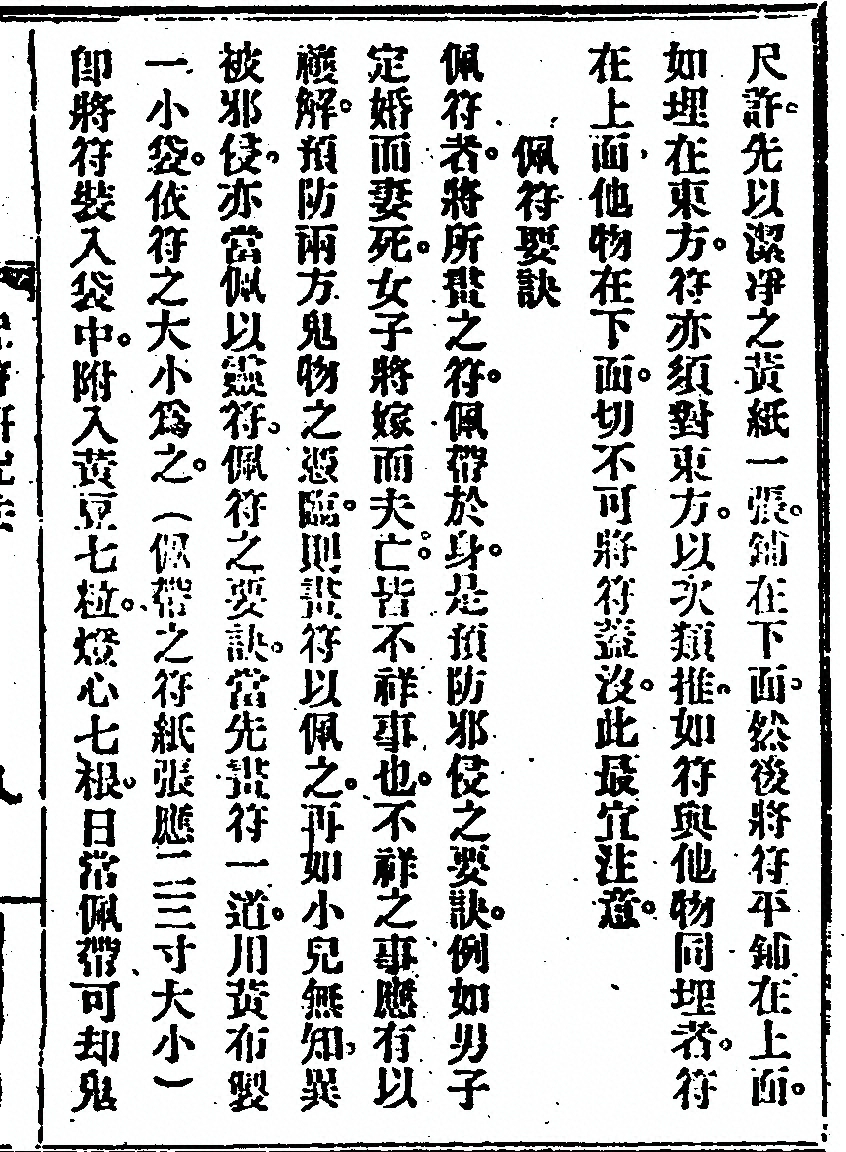 尺許。先以潔凈之黃紙一張。鋪在下面。然後將符平鋪在上面。
如埋在東方。符亦須對東方。以次類推。如符與他物同埋者。符
在上面。他物在下面。切不可將符蓋沒。此最宜注意。
佩符要訣
佩符者。將所畫之符。佩帶於身。是預防邪侵之要訣。例如男子
定婚而妻死。女子將嫁而夫亡。皆不祥事也。不祥之事。應有以
禳解。預防兩方鬼物之憑臨。則畫符以佩之。再如小兒無知。異
被邪侵。亦當佩以靈符。佩符之要訣。當先畫符一道。用黃布製
一小袋。依符之大小爲之。（佩帶之符紙張應二三寸大小）
卽將符裝入袋中。附入黃豆七粒。燈心七根。日常佩帶可却鬼